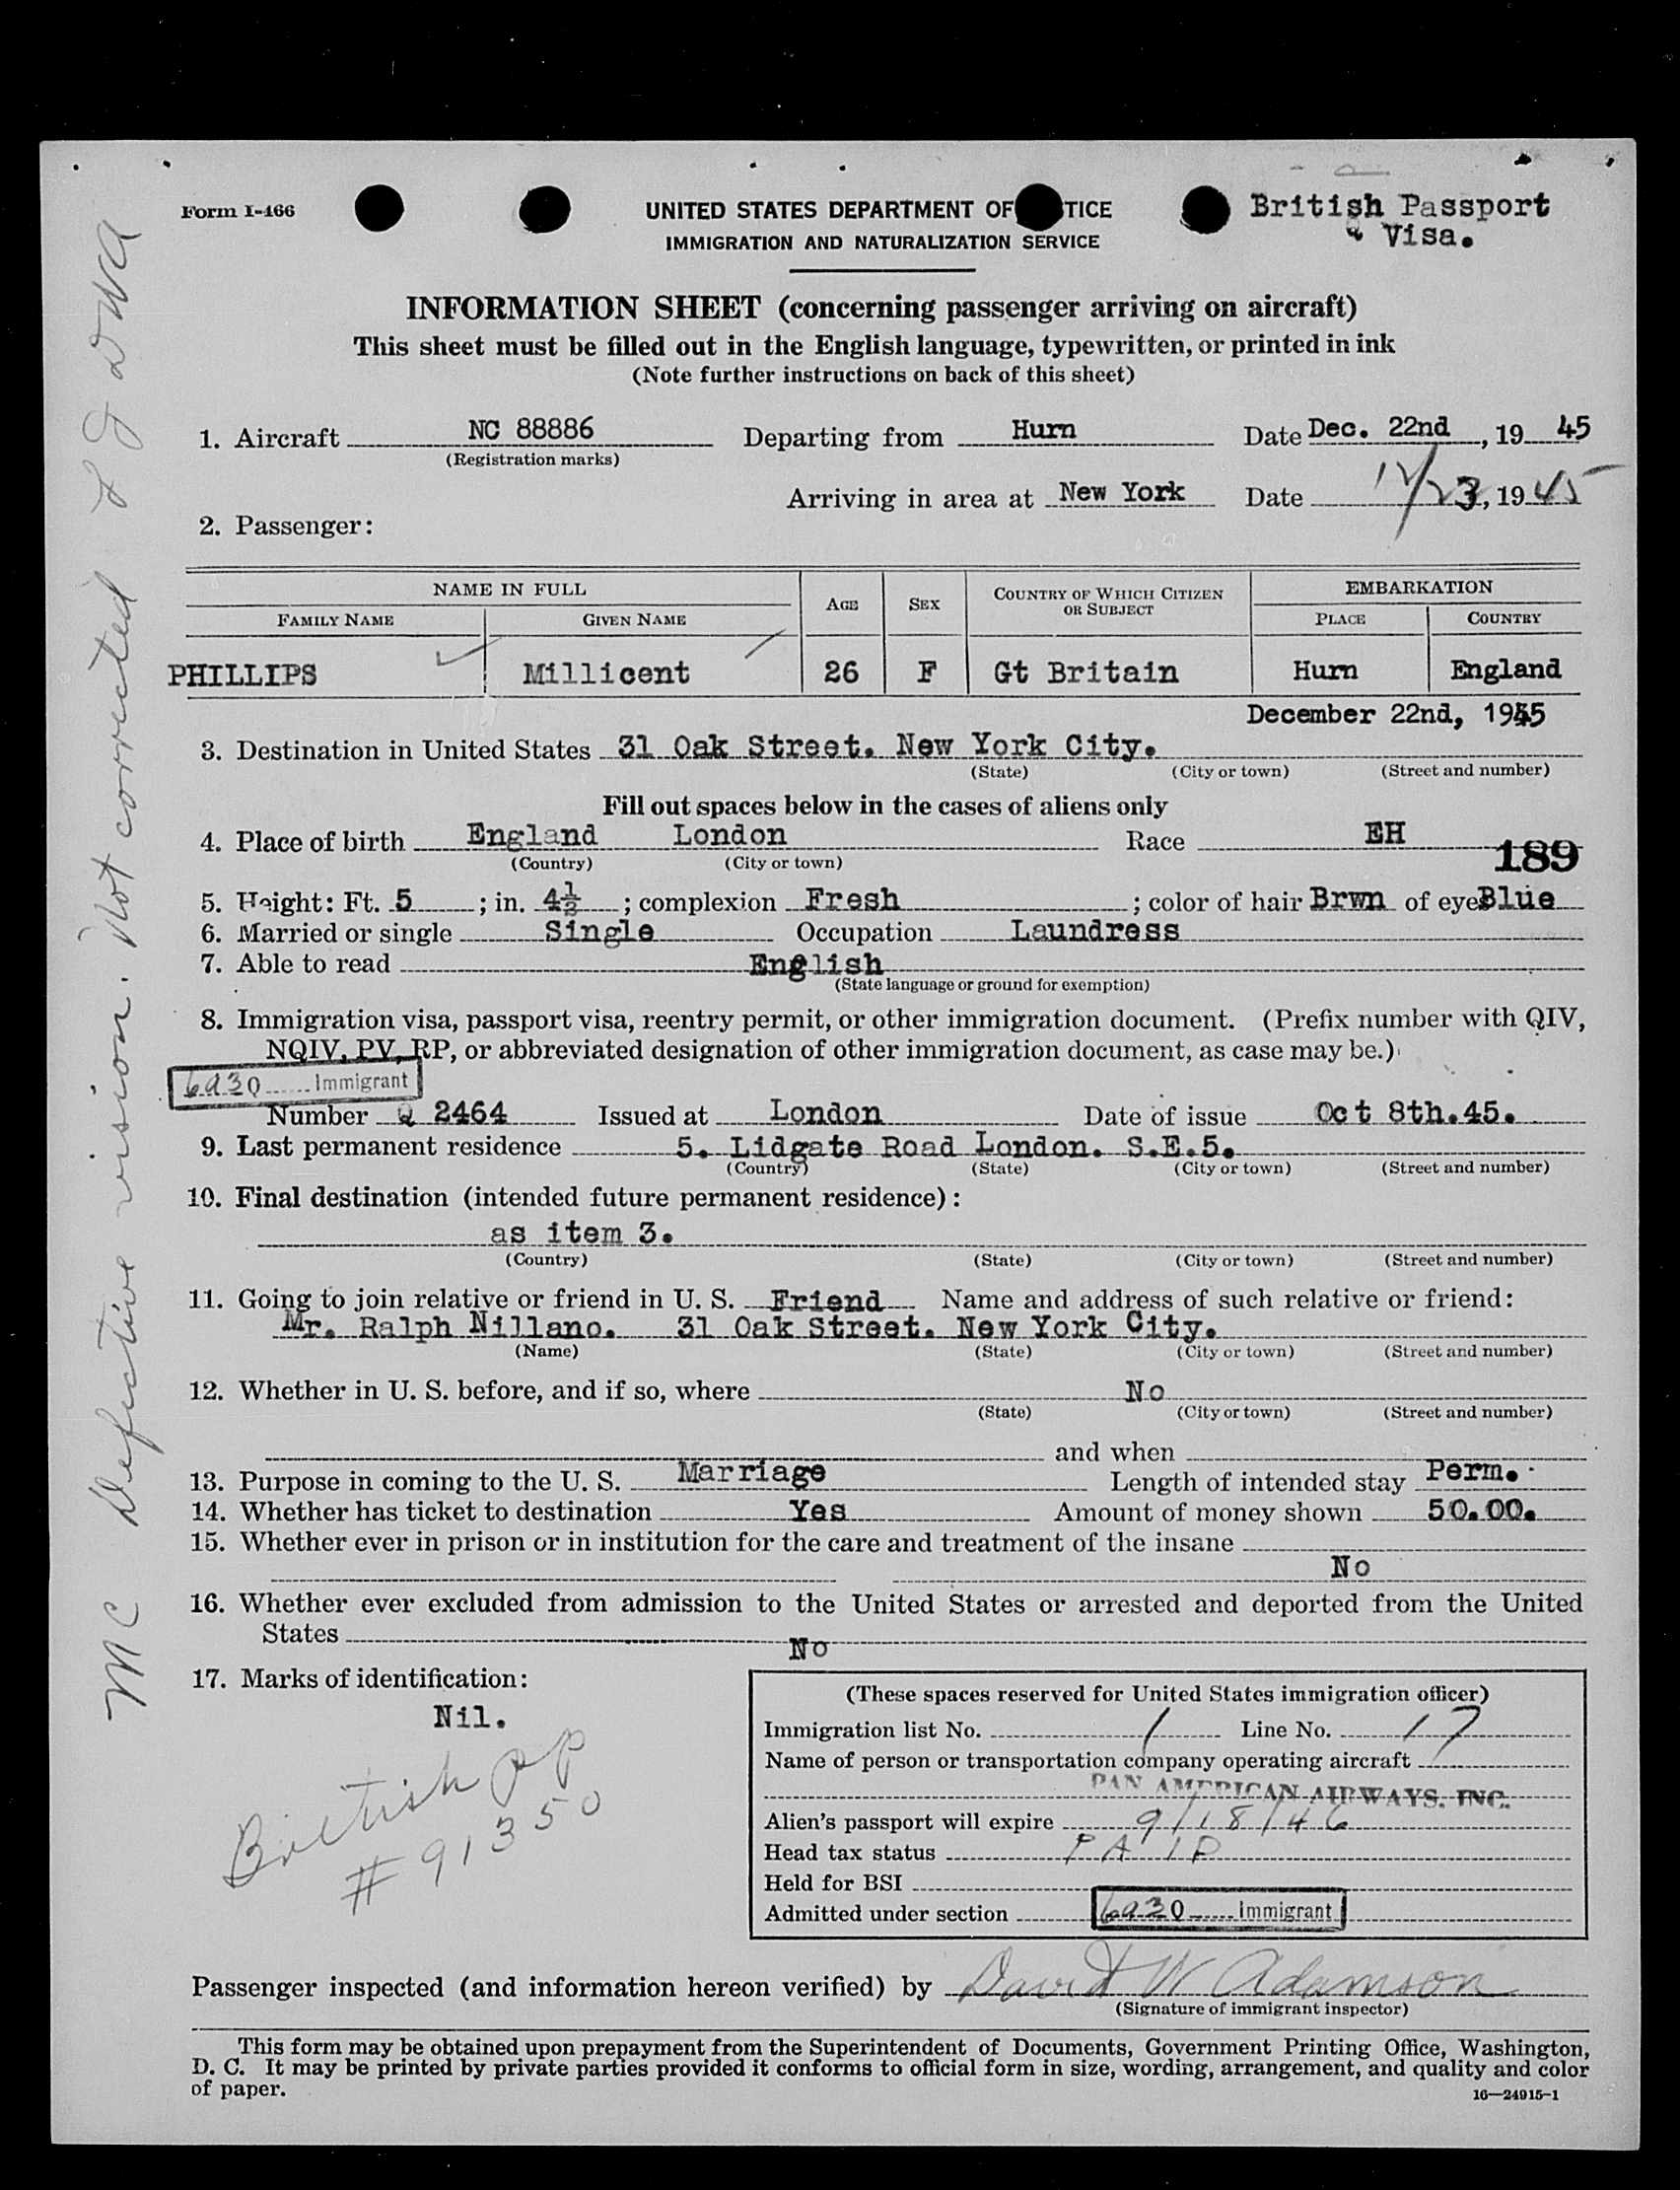 Form I-466
UNITED STATES DEPARTMENT OF TICE
IMMIGRATION AND NATURALIZATION SERVICE
British Passport
& Visa.
INFORMATION SHEET (concerning passenger arriving on aircraft)
This sheet must be filled out in the English language, typewritten, or printed in ink
(Note further instructions on back of this sheet)
1. Aircraft NC 88886 Departing from Hurn Date Dec. 22nd, 19 45
(Registration marks)
Arriving in area at New York Date 12/23, 19 45
2. Passenger:
NAME IN FULL AGE SEX COUNTRY OF WHICH CITIZEN OR SUBJECT EMBARKATION
FAMILY NAME GIVEN NAME PLACE COUNTRY
PHILLIPS Millicent 26 F Gt Britain Hurn England
December 22nd, 1945
3. Destination in United States 31 Oak Street. New York City.
(State) (City or town) (Street and number)
Fill out spaces below in the cases of aliens only
4. Place of birth England London Race EH
(Country) (City or town)
189
5. Height: Ft. 5 ; in. 4½ ; complexion Fresh ; color of hair Brwn of eyes Blue
6. Married or single Single Occupation Laundress
7. Able to read English
(State language or ground for exemption)
8. Immigration visa, passport visa, reentry permit, or other immigration document. (Prefix number with QIV,
NQIV, PV, RP, or abbreviated designation of other immigration document, as case may be.)
6a3Q Immigrant
Number Q 2464 Issued at London Date of issue Oct 8th.45.
9. Last permanent residence 5. Lidgate Road London. S.E.5.
(Country) (State) (City or town) (Street and number)
10. Final destination (intended future permanent residence):
as item 3.
(Country) (State) (City or town) (Street and number)
11. Going to join relative or friend in U. S. Friend Name and address of such relative or friend:
Mr. Ralph Nillano. 31 Oak Street. New York City.
(Name) (State) (City or town) (Street and number)
12. Whether in U. S. before, and if so, where No
(State) (City or town) (Street and number)
and when
13. Purpose in coming to the U. S. Marriage Length of intended stay Perm.
14. Whether has ticket to destination Yes Amount of money shown 50.00.
15. Whether ever in prison or in institution for the care and treatment of the insane
No
16. Whether ever excluded from admission to the United States or arrested and deported from the United
States No
17. Marks of identification:
Nil.
British PP
# 91350
(These spaces reserved for United States immigration officer)
Immigration list No. 1 Line No. 17
Name of person or transportation company operating aircraft
PAN AMERICAN AIRWAYS. INC.
Alien's passport will expire 9/18/46
Head tax status PAID
Held for BSI
Admitted under section 6a3Q Immigrant
Passenger inspected (and information hereon verified) by David W Adamson
(Signature of immigrant inspector)
This form may be obtained upon prepayment from the Superintendent of Documents, Government Printing Office, Washington,
D. C. It may be printed by private parties provided it conforms to official form in size, wording, arrangement, and quality and color
of paper.
16—24915-1
MC Defective vision. Not corrected